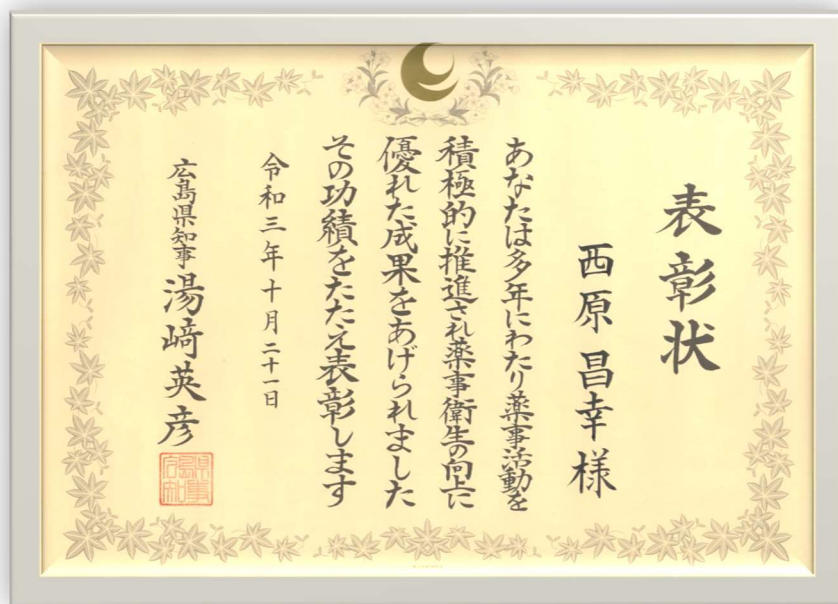 表彰状
西原昌幸様
あなたは多年にわたり薬事活動を
積極的に推進され薬事衛生の向上に
優れた成果をあげられました
その功績をたたえ表彰します
令和三年十月二十一日
広島県知事 湯﨑英彦